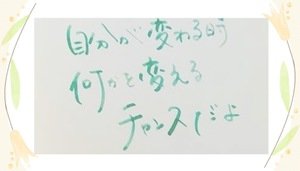 自分が変わる時
何かを変える
チャンスだよ